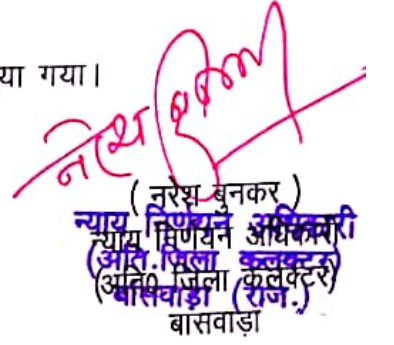 या गया।
नरेश बुनकर
( नरेश बुनकर )
न्याय निर्णयन अधिकारी
न्याय निर्णयन अधिकारी
(अति. जिला कलक्टर)
(अति० जिला कलेक्टर)
बांसवाड़ा (राज.)
बासवाड़ा